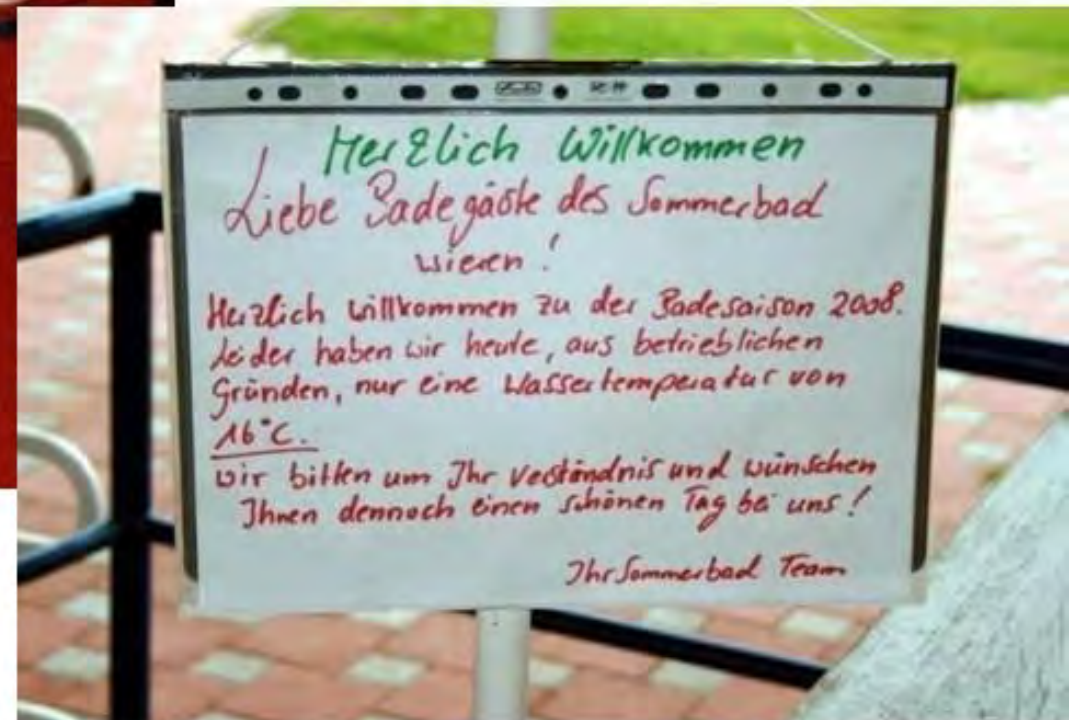 Herzlich Willkommen
Liebe Badegäste des Sommerbad
Wieren!
Herzlich Willkommen zu der Badesaison 2008.
Leider haben wir heute, aus betrieblichen
Gründen, nur eine Wassertemperatur von
16°C.
Wir bitten um Ihr Verständnis und wünschen
Ihnen dennoch einen schönen Tag bei uns!
Ihr Sommerbad Team